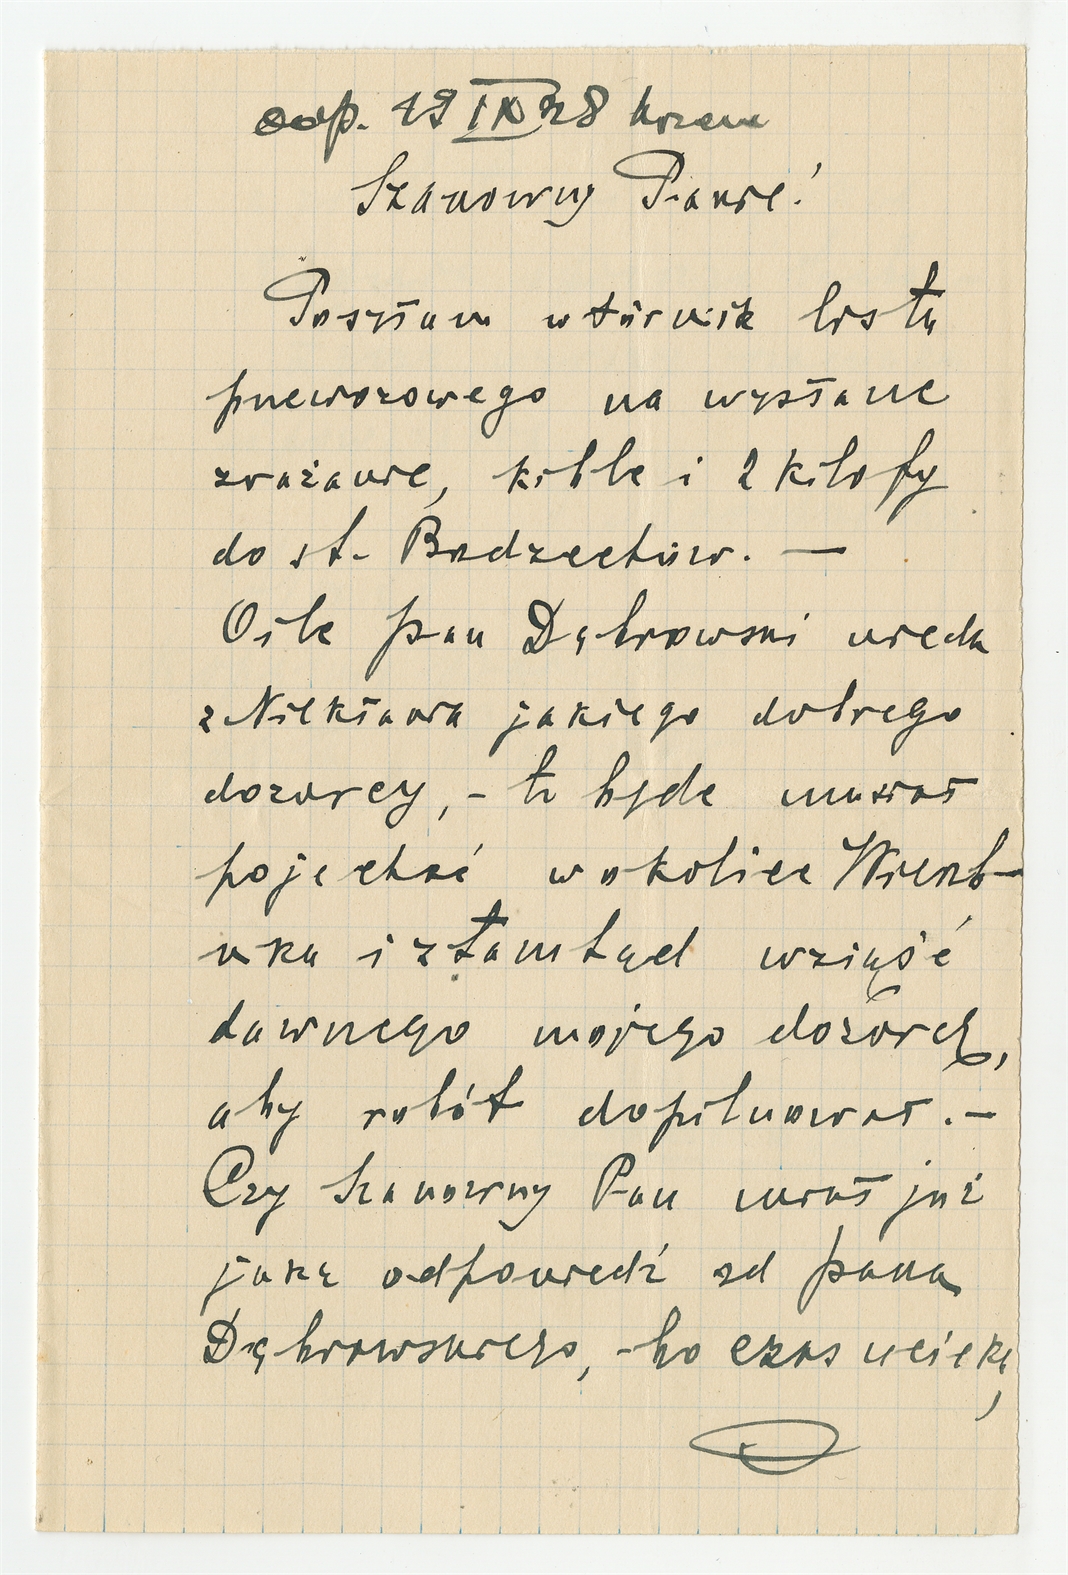 odp. 19 IX 28
Szanowny Panie!
Posyłam wtórnik listu
przewozowego na wysłane
żelazie, kible i 2 kilofy
do st. Bodzechów. —
O ile pan Dąbrowski nieda
z Niekłania jakiego dobrego
dozorcy, – to będe musiał
pojechać w okolice Wierzb-
nika i ztamtąd wziąść
dawnego mojego dozorcę,
aby robót dopilnował. –
Czy Szanowny Pan miał już
jaką odpowiedź od pana
Dąbrowskiego, – bo czas ucieka,